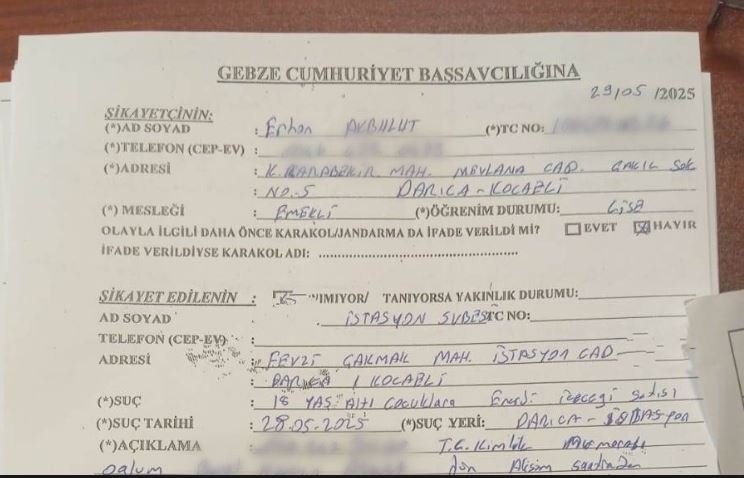 GEBZE CUMHURİYET BAŞSAVCILIĞINA
29/05 /2025
ŞİKAYETÇİNİN:
(*)AD SOYAD : Erhan AKBULUT (*)TC NO:
(*)TELEFON (CEP-EV) :
(*)ADRESİ : K. KARABEKİR MAH. MEVLANA CAD. ÇAKIL SOK
: NO-5 DARICA-KOCAELİ
(*) MESLEĞİ : EMEKLİ (*)ÖĞRENİM DURUMU: Lise
OLAYLA İLGİLİ DAHA ÖNCE KARAKOL/JANDARMA DA İFADE VERİLDİ Mİ? EVET HAYIR
İFADE VERİLDİYSE KARAKOL ADI:
ŞİKAYET EDİLENİN : IMIYOR/ TANIYORSA YAKINLIK DURUMU:
AD SOYAD : İSTASYON ŞUBESİ TC NO:
TELEFON (CEP-EV) :
ADRESİ : FEVZİ ÇAKMAK MAH. İSTASYON CAD
: DARICA / KOCAELİ
(*)SUÇ : 18 YAŞ ALTI Çocuklara Enerji içeceği satışı
(*)SUÇ TARİHİ : 28.05.2025 (*)SUÇ YERİ: DARICA-İSTASYON
(*)AÇIKLAMA : T.C. Kimlik
oğlum